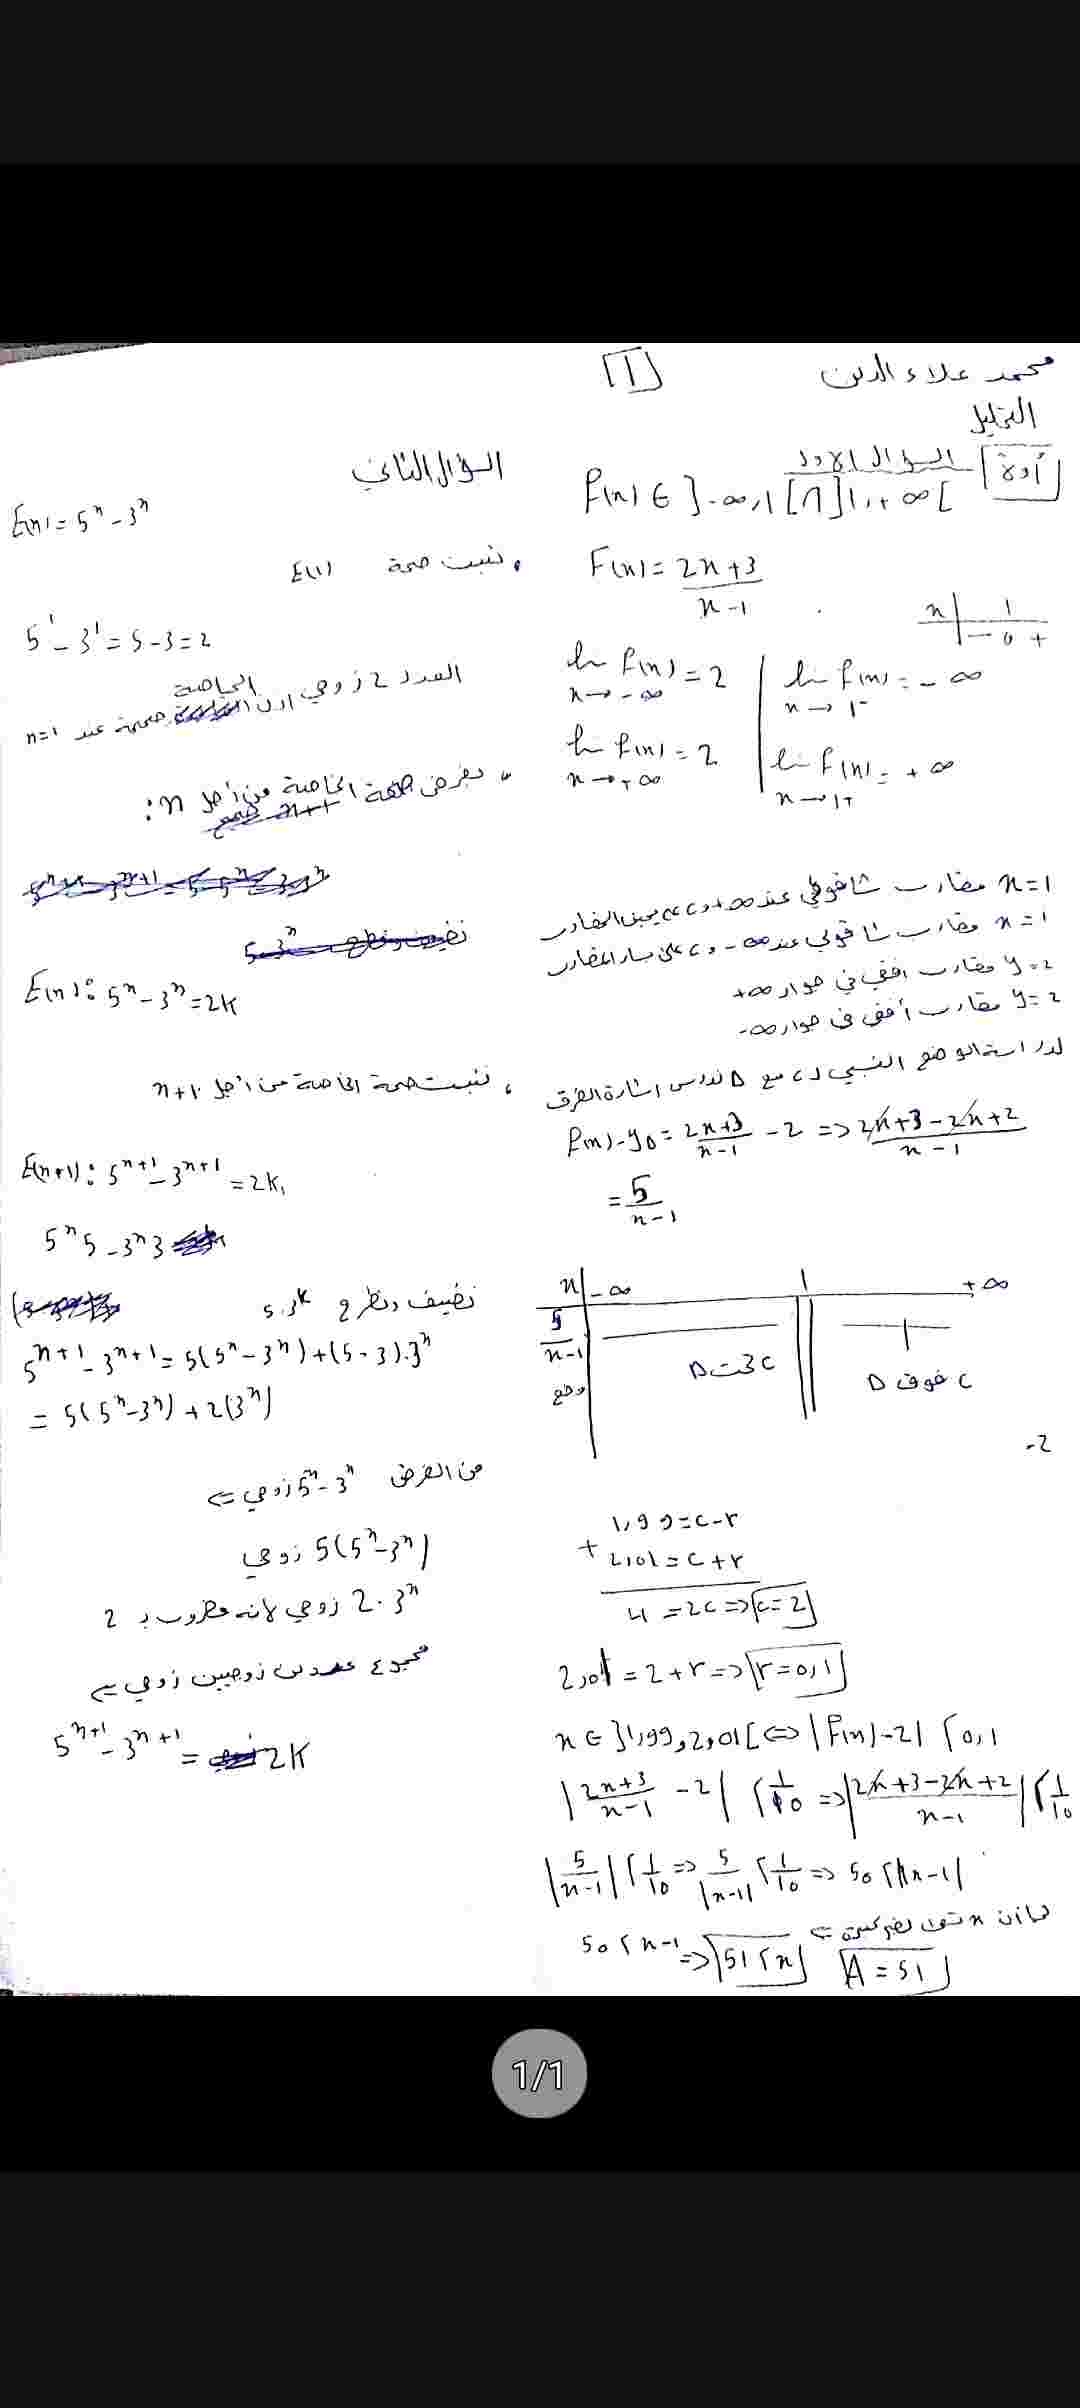 محمد علاء الدين
[1]
التحليل
أولاً
السؤال الاول
f(x) ∈ ]-∞,1[ ∪ ]1,+∞[
F(x) = (2x+3)/(x-1)
x | 1
| - 0 +
lim f(x) = 2
x → -∞
lim f(x) = -∞
x → 1-
lim f(x) = 2
x → +∞
lim f(x) = +∞
x → 1+
x=1 مقارب شاقولي عند +∞ و c يمين المقارب
x=1 مقارب شاقولي عند -∞ و c على يسار المقارب
y=2 مقارب افقي في جوار +∞
y=2 مقارب أفقي في جوار -∞
لدراسة الوضع النسبي لـ c مع Δ ندرس اشارة الفرق
f(x)-yΔ = (2x+3)/(x-1) - 2 => (2x+3-2x+2)/(x-1)
= 5/(x-1)
x | -∞ 1 +∞
5/(x-1) | - || +
وضع | C تحت Δ || C فوق Δ
-2
1,99 = c-r
+ 2,01 = c+r
4 = 2c => c=2
2,01 = 2+r => r=0,1
x ∈ ]1,99,2,01[ <=> |f(x)-2| < 0,1
|(2x+3)/(x-1) - 2| < 1/10 => |(2x+3-2x+2)/(x-1)| < 1/10
|5/(x-1)| < 1/10 => 5/|x-1| < 1/10 => 50 < |x-1|
بما ان x كبيرة <=
50 < x-1 => 51 < x A = 51
السؤال الثاني
E(n) = 5^n - 3^n
• نثبت صحة E(1)
5^1 - 3^1 = 5-3 = 2
العدد 2 زوجي اذن الخاصة صحيحة عند n=1
• نفرض صحة الخاصة من أجل n:
E(n): 5^n - 3^n = 2k
• نثبت صحة الخاصة من أجل n+1
E(n+1): 5^{n+1} - 3^{n+1} = 2k,
5^n 5 - 3^n 3
نضيف ونطرح 5.3^k
5^{n+1} - 3^{n+1} = 5(5^n - 3^n) + (5-3).3^n
= 5(5^n - 3^n) + 2(3^n)
من الفرض 5^n - 3^n زوجي <=
5(5^n - 3^n) زوجي
2.3^n زوجي لانه مضروب بـ 2
مجموع عددين زوجيين زوجي <=
5^{n+1} - 3^{n+1} = 2k
1/1